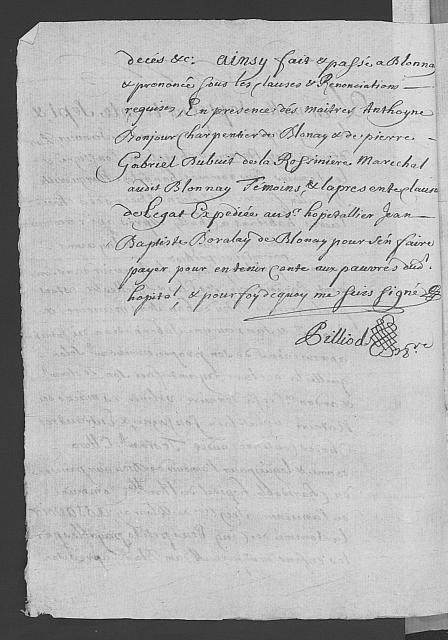 decés &c. ainsy fait & passé a Blonnay
& prononcé sous les clauses & Renonciations
requises, En presence des maitres Anthoyne
Bonjour charpentier de Blonay & de pierre
Gabriel Dubuit de la Rossiniere Marechal
audit Blonnay Témoins, & la presente clause
de Legat Expediée au Sr. hopitallier Jean
Baptiste Boralay de Blonay pour s'en faire
payer pour en tenir conte aux pauvres dud.
hopital, & pour foy dequoy me suis signé
Pilliod